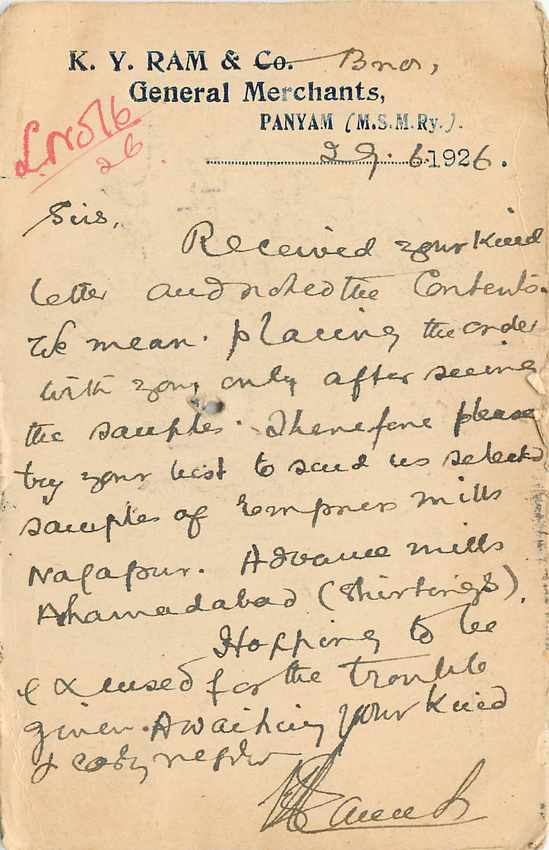 K. Y. RAM & Co. Bros,
General Merchants,
PANYAM (M.S.M.Ry.).
L. No 516
26
29.6.1926.
Sirs,
Received your kind
letter and noted the Contents.
We mean placing the order
with you only after seeing
the samples. Therefore please
try your best to send us selected
samples of Empress mills
Nagapur. Advance mills
Ahamadabad (Shirtings).
Hopping to be
excused for the trouble
given. Awaiting your kind
& early reply